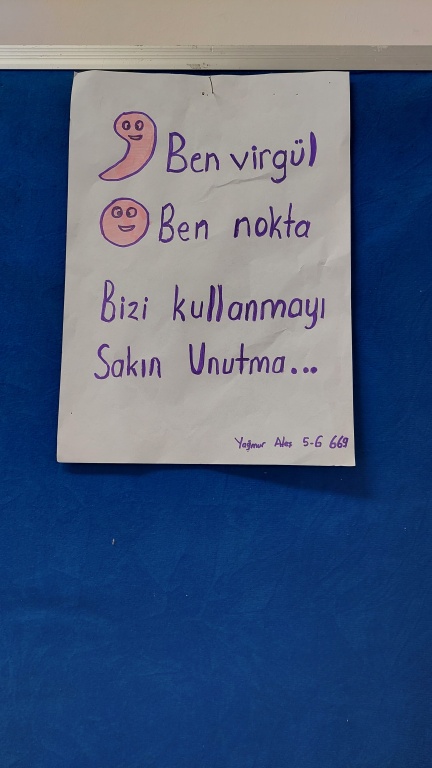 Ben virgül
Ben nokta
Bizi kullanmayı
Sakın Unutma...
Yağmur Ateş 5-6 669